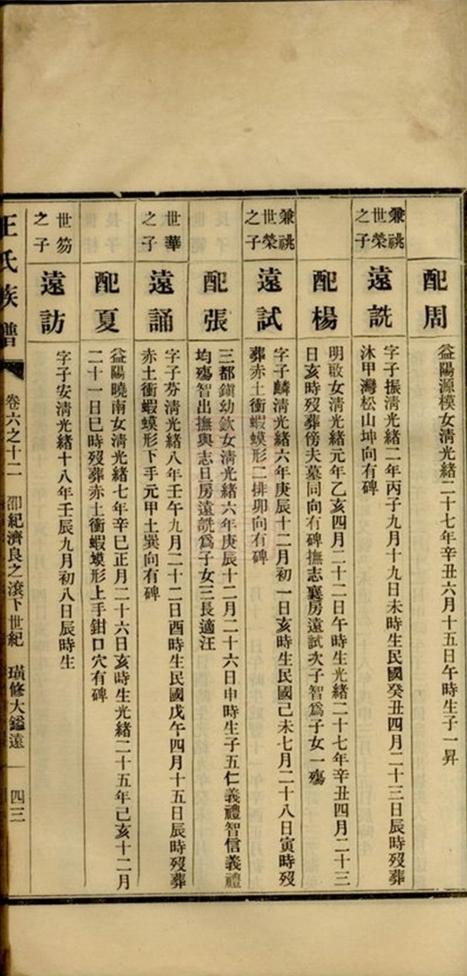 配周
益陽源模女清光緒二十七年辛丑六月十五日午時生子一昇
兼祧
世榮
之子
遠詵
字子振清光緒二年丙子九月十九日未時生民國癸丑四月二十三日辰時歿葬
沐甲灣松山坤向有碑
配楊
明敢女清光緒元年乙亥四月二十二日午時生光緒二十七年辛丑四月二十三
日亥時歿葬傍夫墓同向有碑撫志襄房遠試次子智為子女一殤
兼祧
世榮
之子
遠試
字子麟清光緒六年庚辰十二月初一日亥時生民國己未七月二十八日寅時歿
葬赤土衝蝦蟆形二排卯向有碑
配張
三都鎮幼欽女清光緒六年庚辰十二月二十六日申時生子五仁義禮智信義禮
均殤智出撫與志日房遠詵為子女三長適汪
世華
之子
遠誦
字子芬清光緒八年壬午九月二十二日酉時生民國戊午四月十五日辰時歿葬
赤土衝蝦蟆形下手元甲土巽向有碑
配夏
益陽曉南女清光緒七年辛巳正月二十六日亥時生光緒二十五年己亥十二月
二十一日巳時歿葬赤土衝蝦蟆形上手鉗口穴有碑
世笏
之子
遠訪
字子安清光緒十八年壬辰九月初八日辰時生
王氏族譜
卷六之十二
卲紀濟良之滾下世紀
璜修大鎰遠
四三